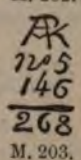 ÆK
No 5
146
268
M. 203.